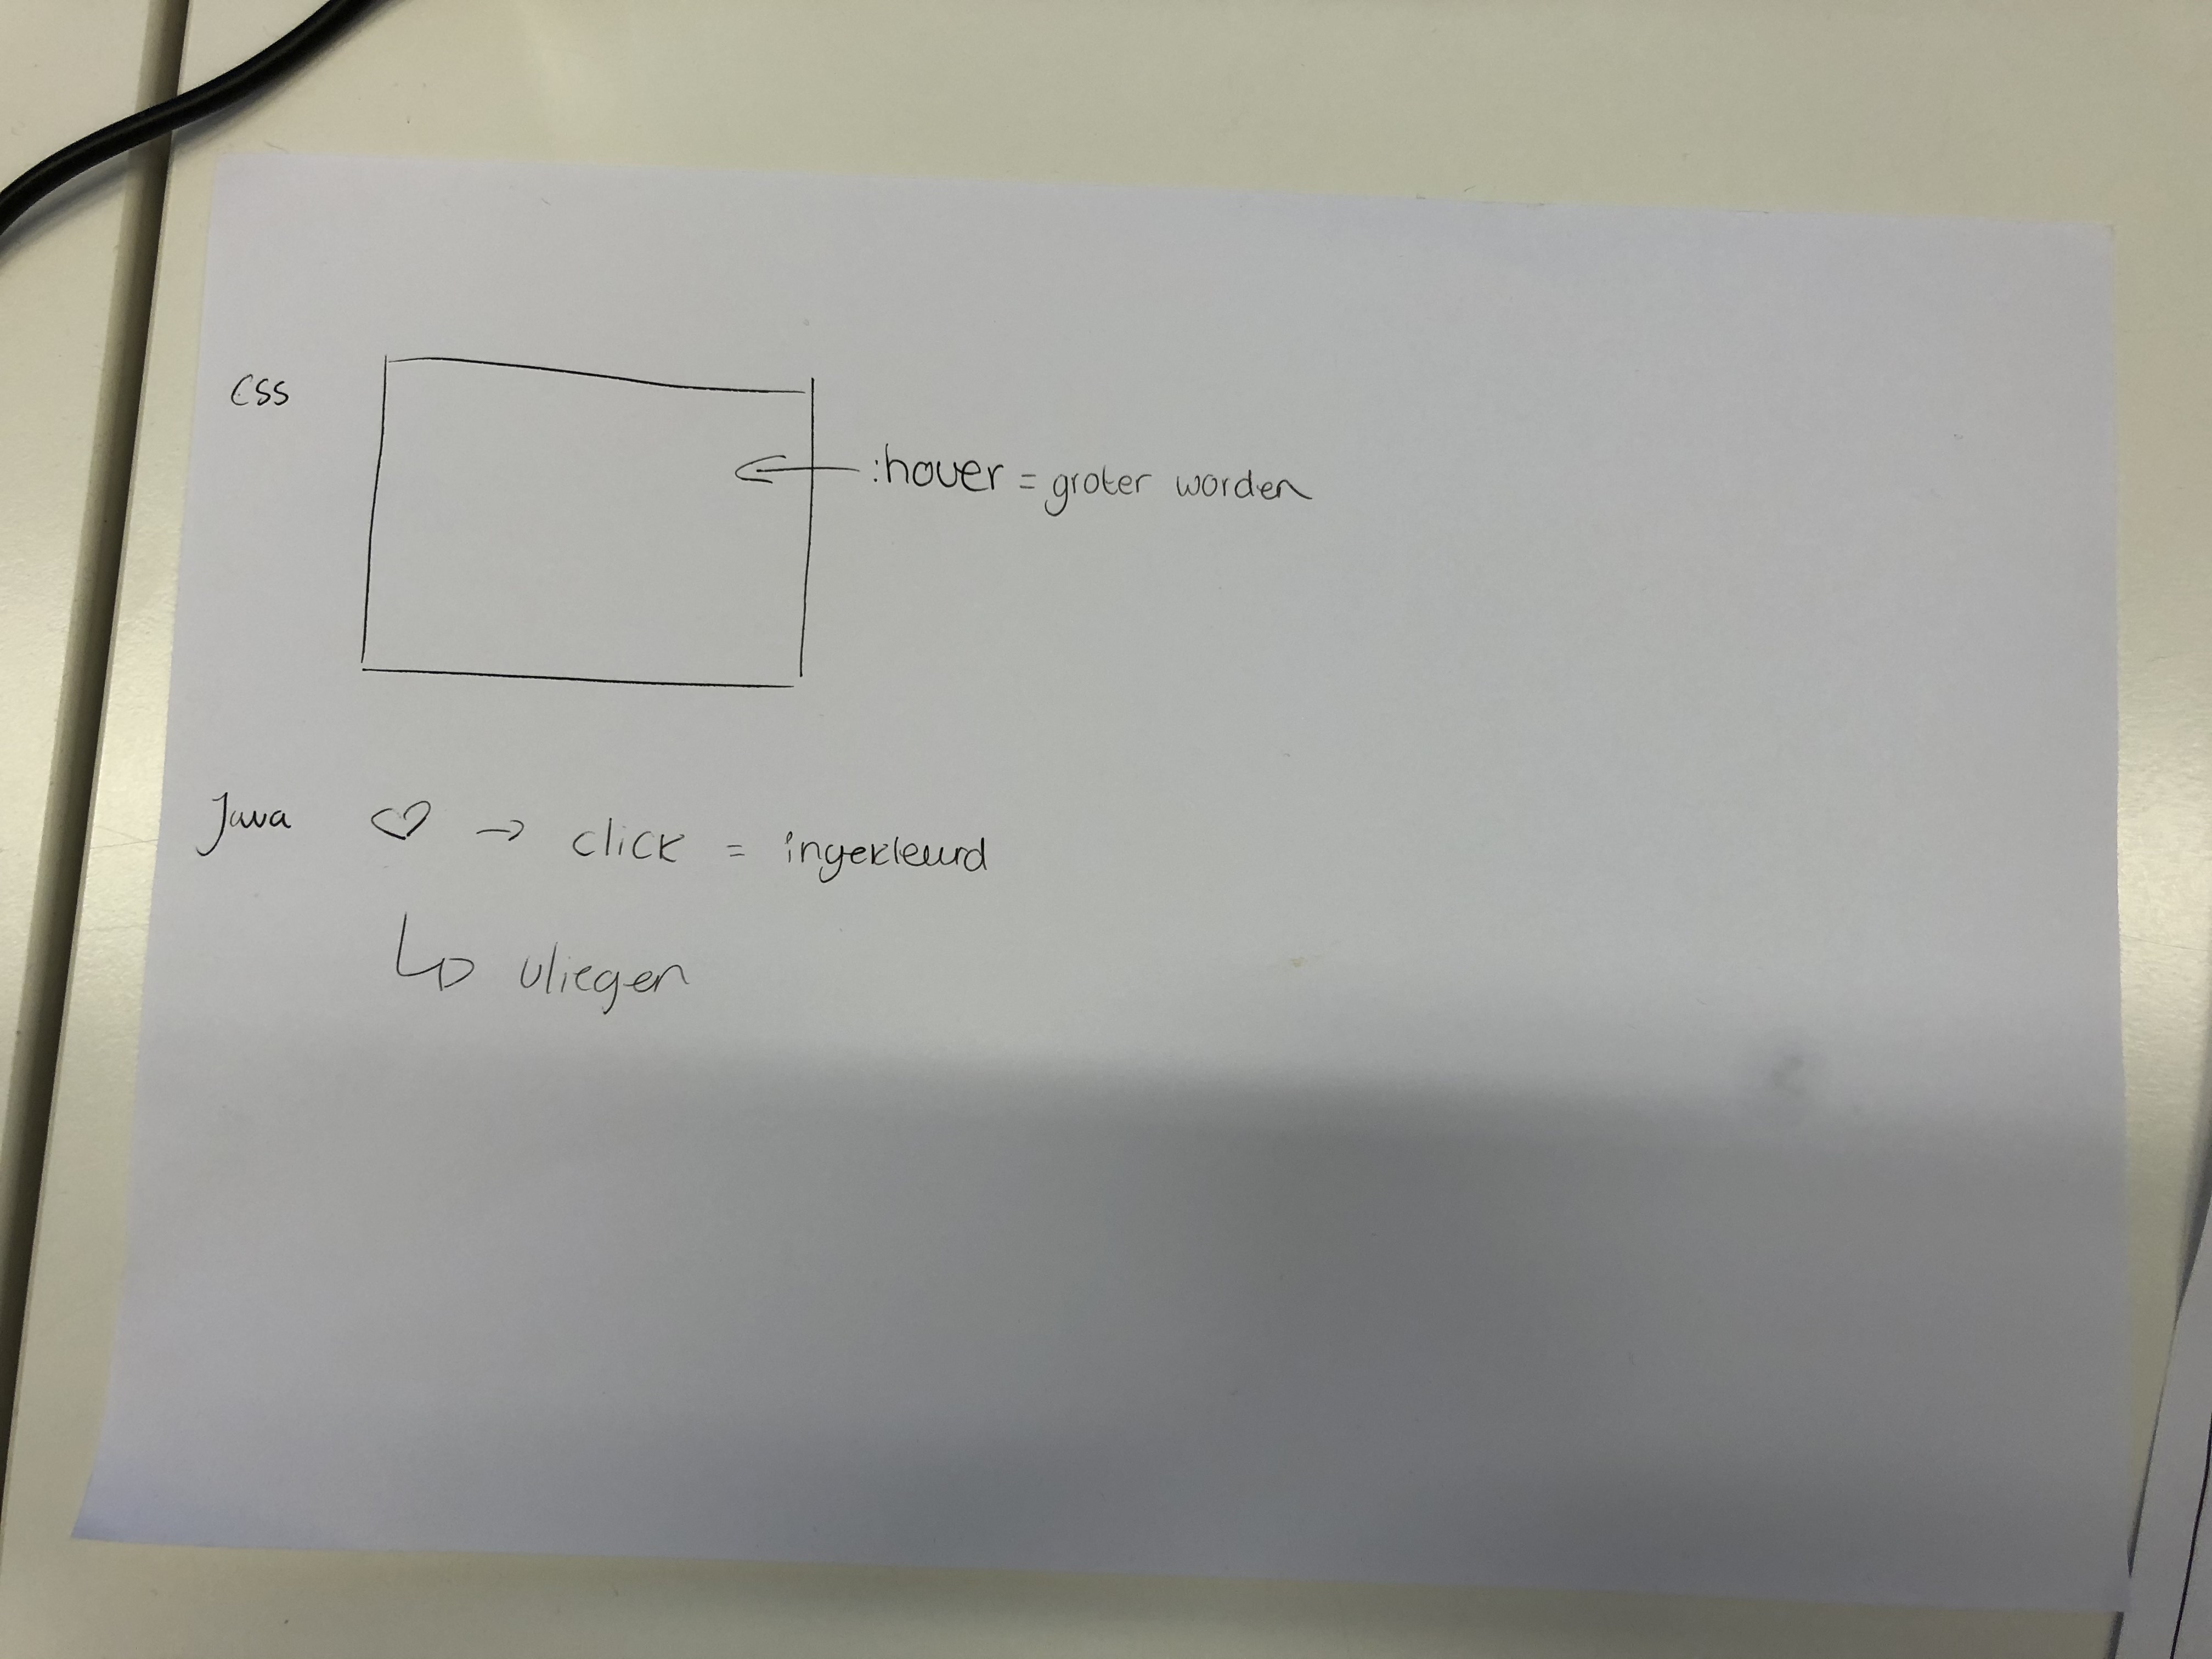 CSS
:hover = groter worden
Java ♡ → click = ingekleurd
↳ vliegen